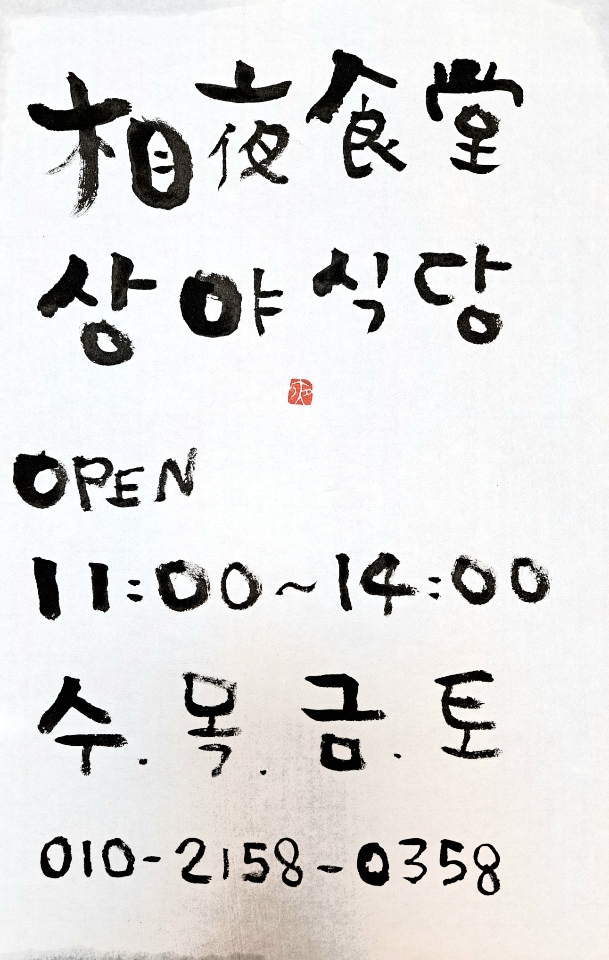 相夜食堂
상야식당
OPEN
11:00~14:00
수.목.금.토
010-2158-0358